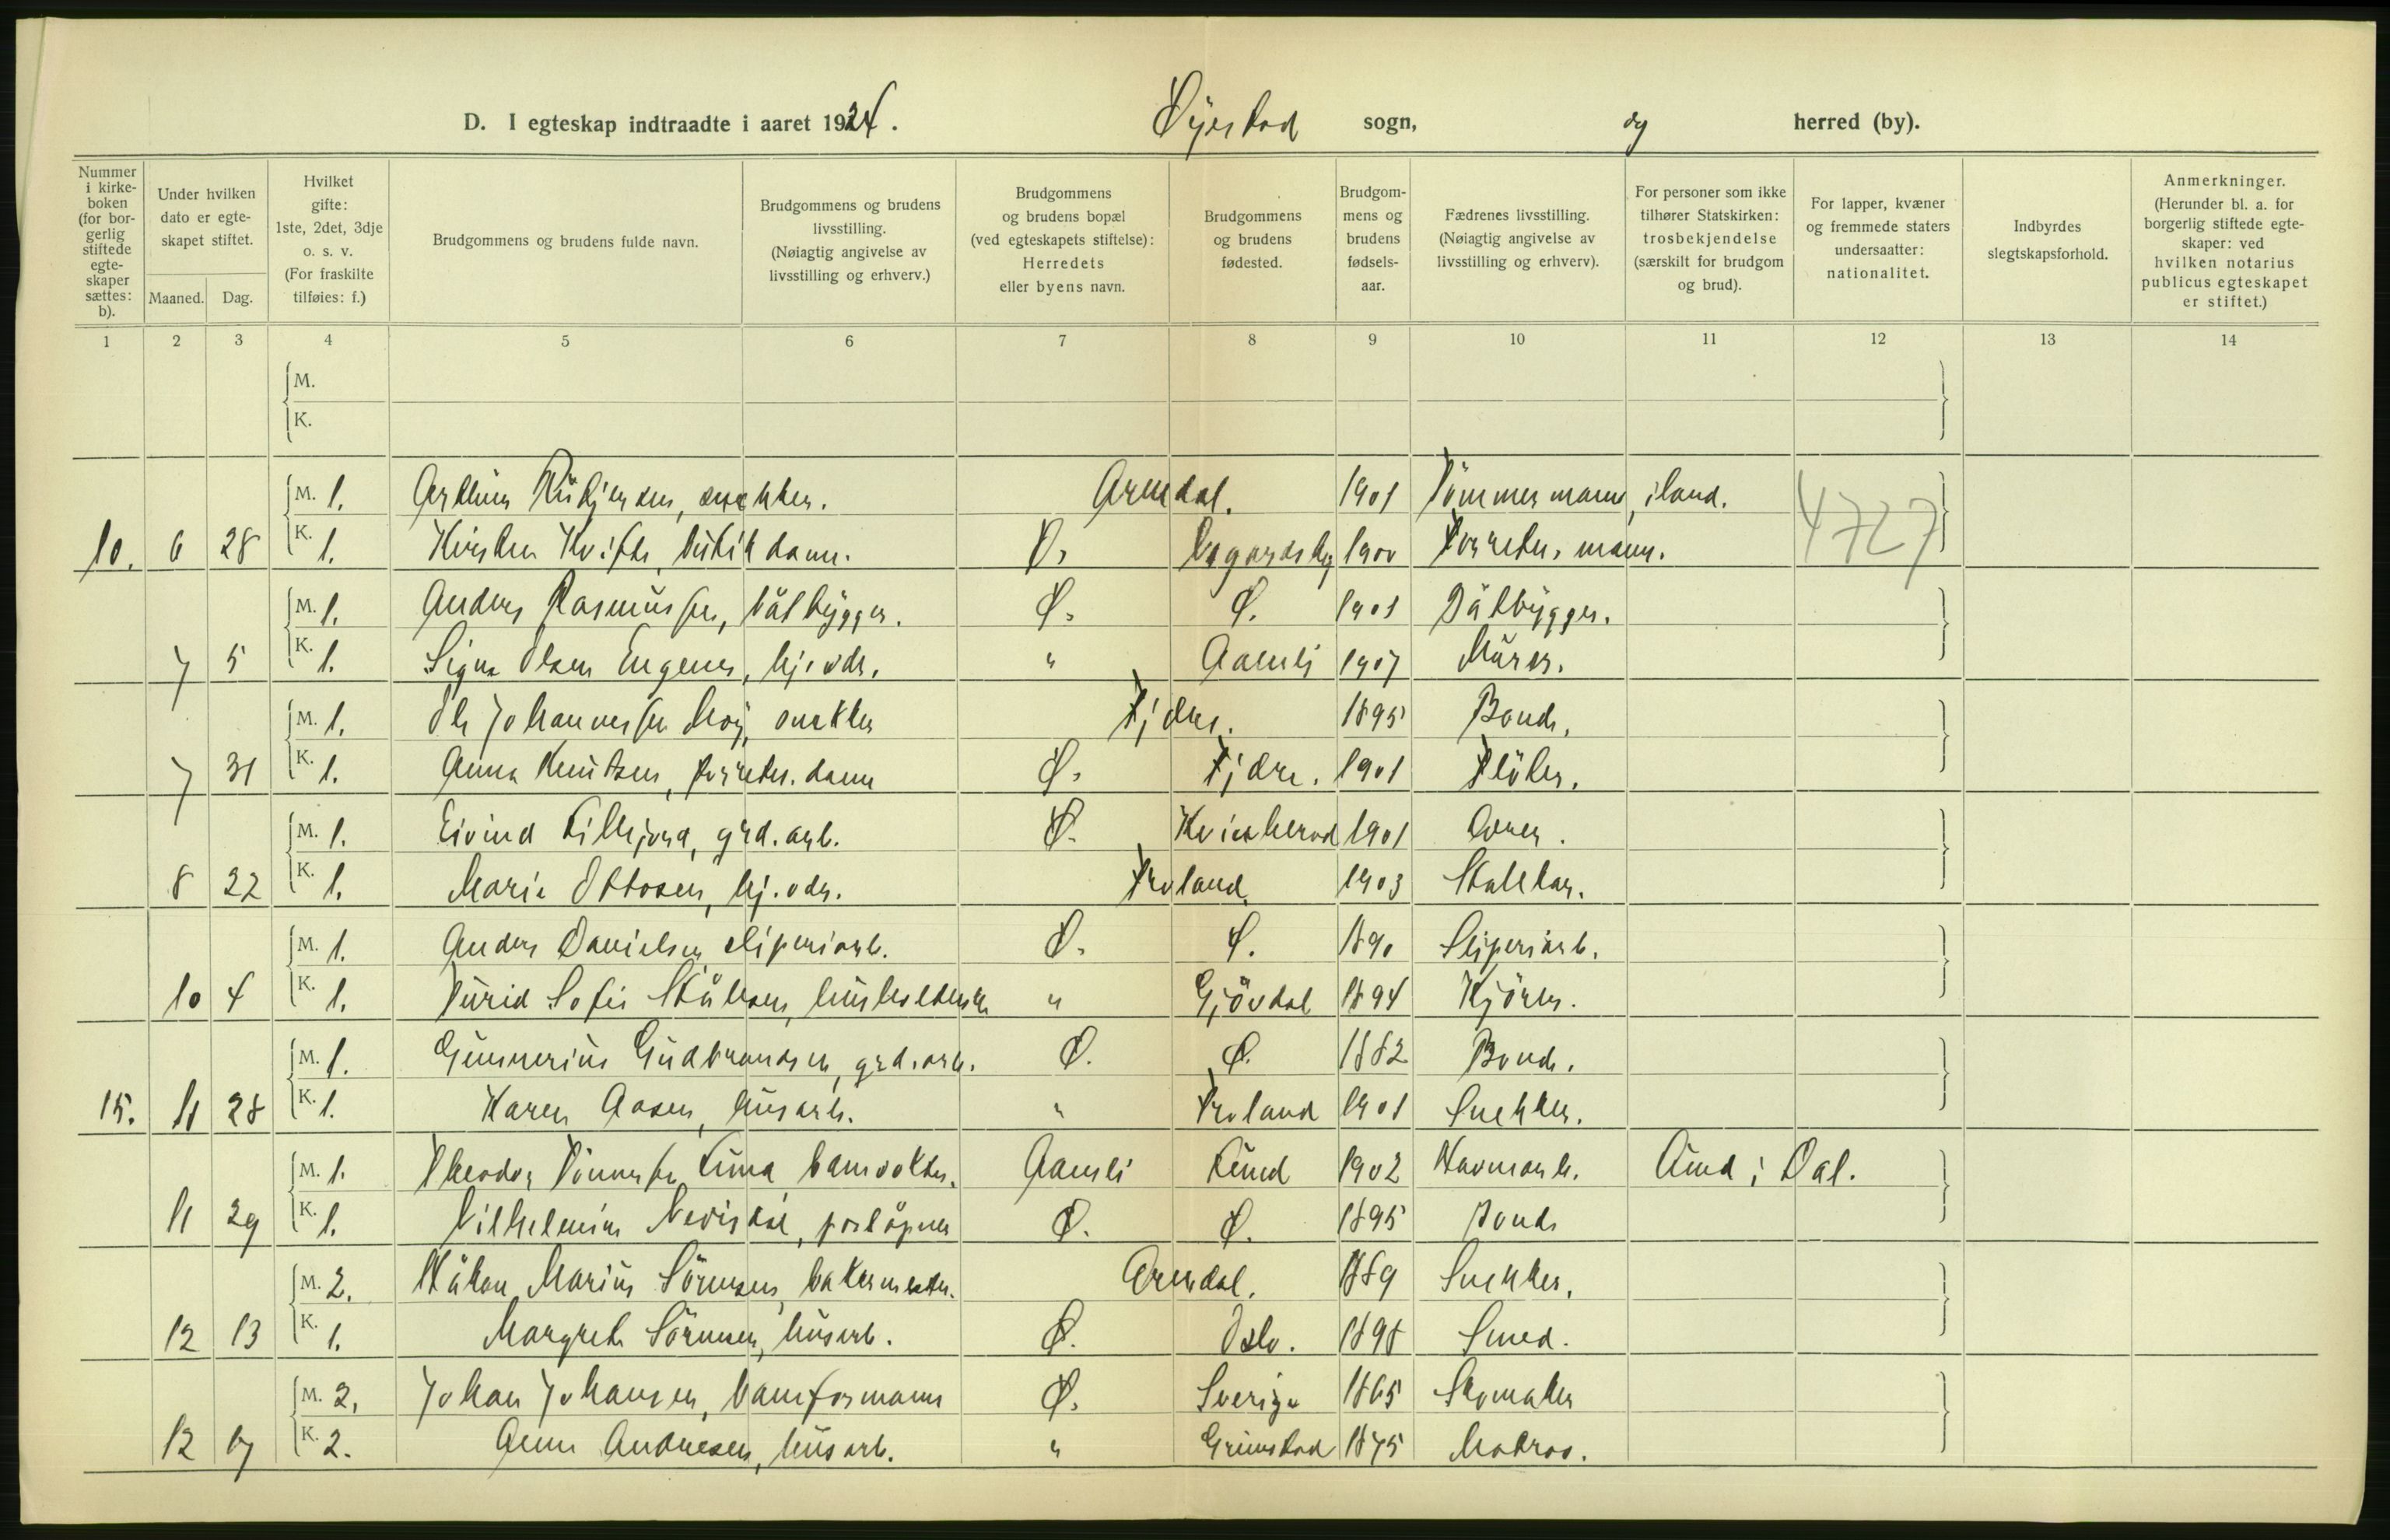 D. I egteskap indtraadte i aaret 1924. Øyestad sogn, og herred (by).
Nummer i kirkeboken (for borgerlig stiftede egteskaper sættes: b).
Under hvilken dato er egteskapet stiftet.
Maaned. Dag.
Hvilket gifte: 1ste, 2det, 3dje o. s. v. (For fraskilte tilføies: f.)
Brudgommens og brudens fulde navn.
Brudgommens og brudens livsstilling. (Nøiagtig angivelse av livsstilling og erhverv.)
Brudgommens og brudens bopæl (ved egteskapets stiftelse): Herredets eller byens navn.
Brudgommens og brudens fødested.
Brudgommens og brudens fødselsaar.
Fædrenes livsstilling. (Nøiagtig angivelse av livsstilling og erhverv).
For personer som ikke tilhører Statskirken: trosbekjendelse (særskilt for brudgom og brud).
For lapper, kvæner og fremmede staters undersaatter: nationalitet.
Indbyrdes slegtskapsforhold.
Anmerkninger. (Herunder bl. a. for borgerlig stiftede egteskaper: ved hvilken notarius publicus egteskapet er stiftet.)
1 2 3 4 5 6 7 8 9 10 11 12 13 14
M.
K.
M. 1. snekker. Arendal. 1901 Tömmermann, iland. 4727
10. 6 28 K. 1. Kirsten Kvifte, butikdame. Ø. Vegardshej 1900 Forretn. mann.
M. 1. Anders Rasmussen, båtbygger. Ø. Ø. 1901 Båtbygger.
7 5 K. 1. Signe Olsen Engenes, hjevdr. " Aamli 1907 Murer.
M. 1. Ole Johannessen Moy, snekker Fjære. 1895 Bonde.
7 31 K. 1. Anna Knutsen, forretn. dame Ø. Fjære. 1901 Flöter.
M. 1. Eivind, grd. arb. Ø. Kvinherad 1901
8 22 K. 1. Marie Ottosen, hj. vdr. Froland. 1903 Stallkar.
M. 1. Anders Danielsen, sliperiarb. Ø. Ø. 1890 Sliperiarb.
10 4 K. 1. Turid Sofie Ståleson, husholderske " Gjövdal 1894 Kjörer.
M. 1. Gunnerius Gudbrandsen, grd. arb. Ø. Ø. 1882 Bonde.
15. 11 28 K. 1. Karen Aasen, husarb. " Froland 1901 Snekker.
M. 1. Theodor Tönnesen banevokter. Aamli Lund 1902 Havnearb. Amd i Dal.
11 29 K. 1. Vilhelmine Nevisdal, poståpner Ø. Ø. 1895 Bonde
M. 2. Håkon Marius Sörensen, bakermester. Arendal. 1889 Snekker.
12 13 K. 1. Margrete Sörensen, husarb. Ø. Oslo. 1898 Smed.
M. 2. Johan Johansen, baneformann Ø. Sverige 1865 Skomaker
12 17 K. 2. Anne Andresen, husarb. " Grimstad 1875 Matros.